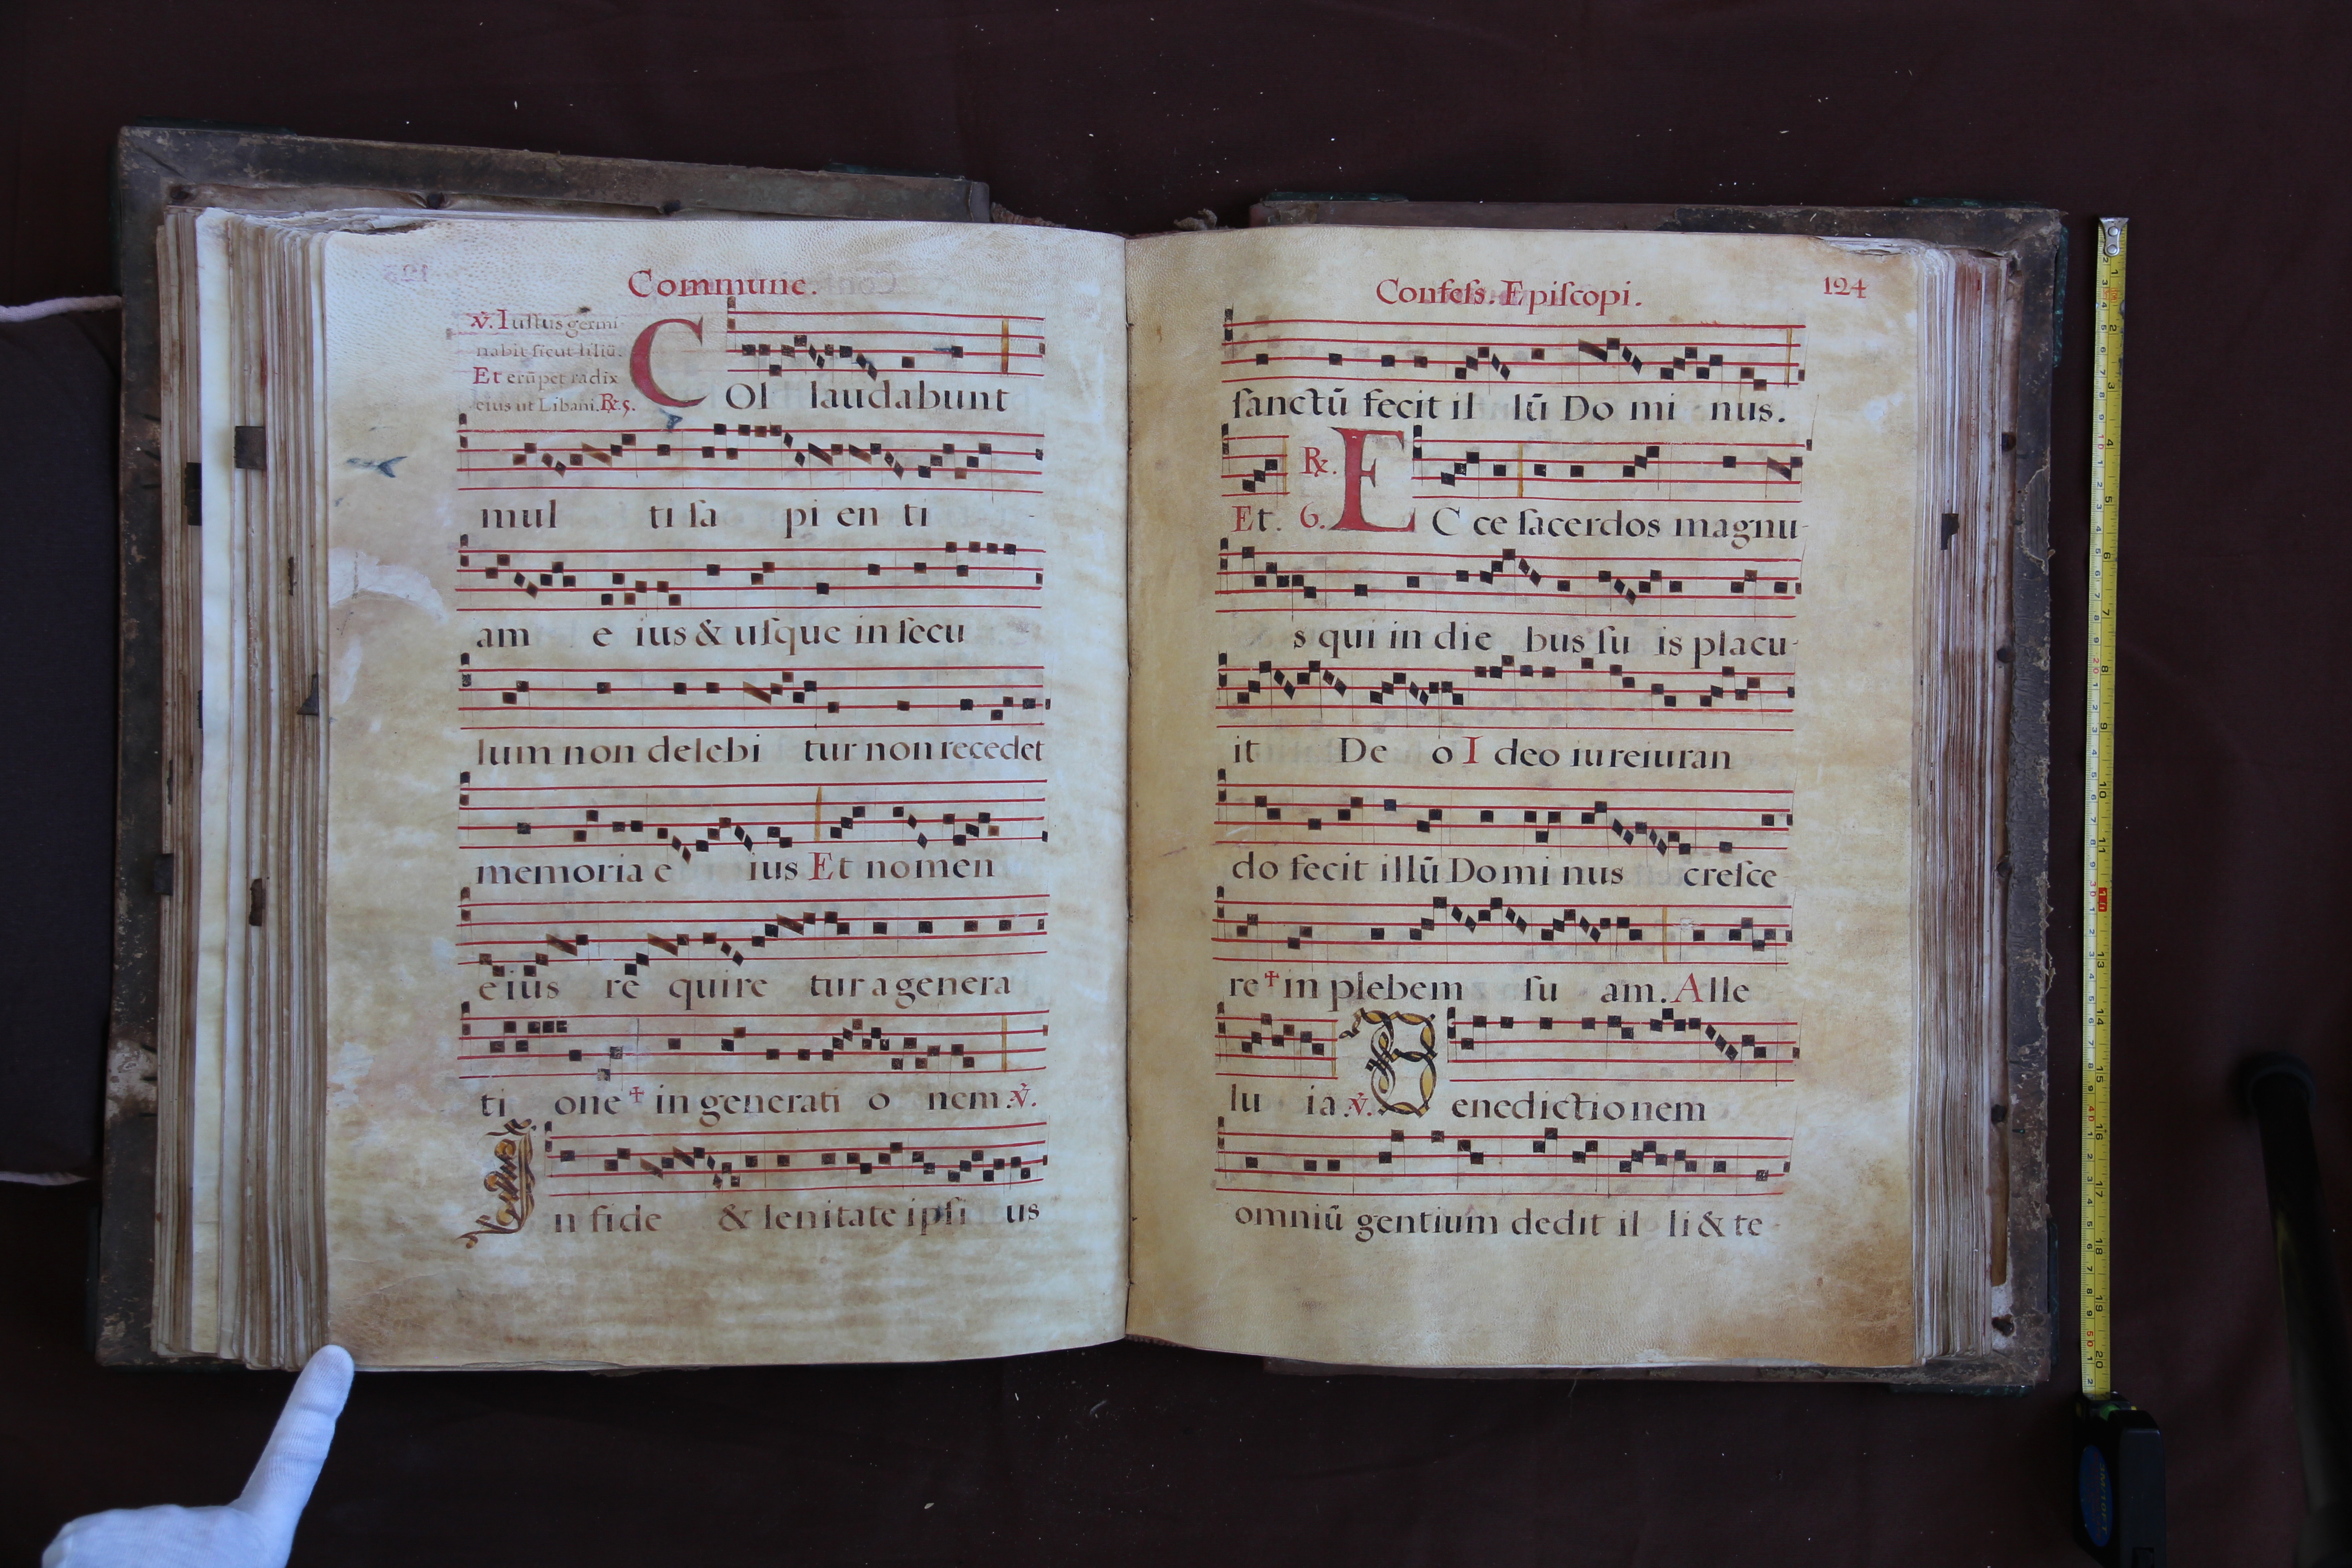 Commune.
℣. Iustus germi
nabit sicut liliū.
Et erūpet radix
eius ut Libani. ℟. 5.
COl laudabunt
mul ti sa pi en ti
am e ius & usque in secu
lum non delebi tur non recedet
memoria e ius Et nomen
eius re quire tur a genera
ti one † in generati o nem. ℣.
In fide & lenitate ipsi us
Confess. Episcopi.
124
sanctū fecit il lū Do mi nus.
Et. ℟. 6. EC ce sacerdos magnu-
s qui in die bus su is placu-
it De o I deo iureiuran
do fecit illū Domi nus cresce
re † in plebem su am. Alle
lu ia. ℣. Benedictionem
omniū gentium dedit il li & te-